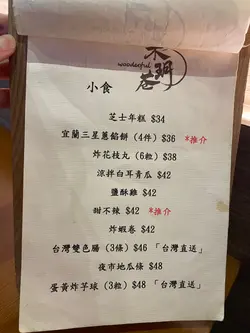 木玥巷
wonderful
小食
芝士年糕 $34
宜蘭三星蔥餡餅 (4件) $36 *推介
炸花枝丸 (6粒) $38
涼拌白耳青瓜 $42
鹽酥雞 $42
甜不辣 $42 *推介
炸蝦卷 $42
台灣雙色腸 (3條) $46 「台灣直送」
夜市地瓜條 $48
蛋黃炸芋球 (3粒) $48 「台灣直送」